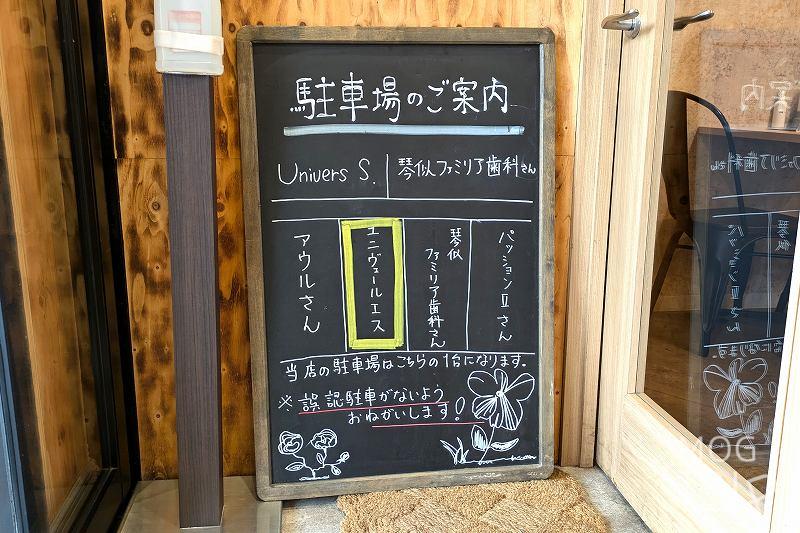 駐車場のご案内
Univers S.
琴似ファミリア歯科さん
パッションⅡさん
琴似
ファミリア歯科さん
ユニヴェールエス
アウルさん
当店の駐車場はこちらの1台になります。
※誤認駐車がないよう
おねがいします!